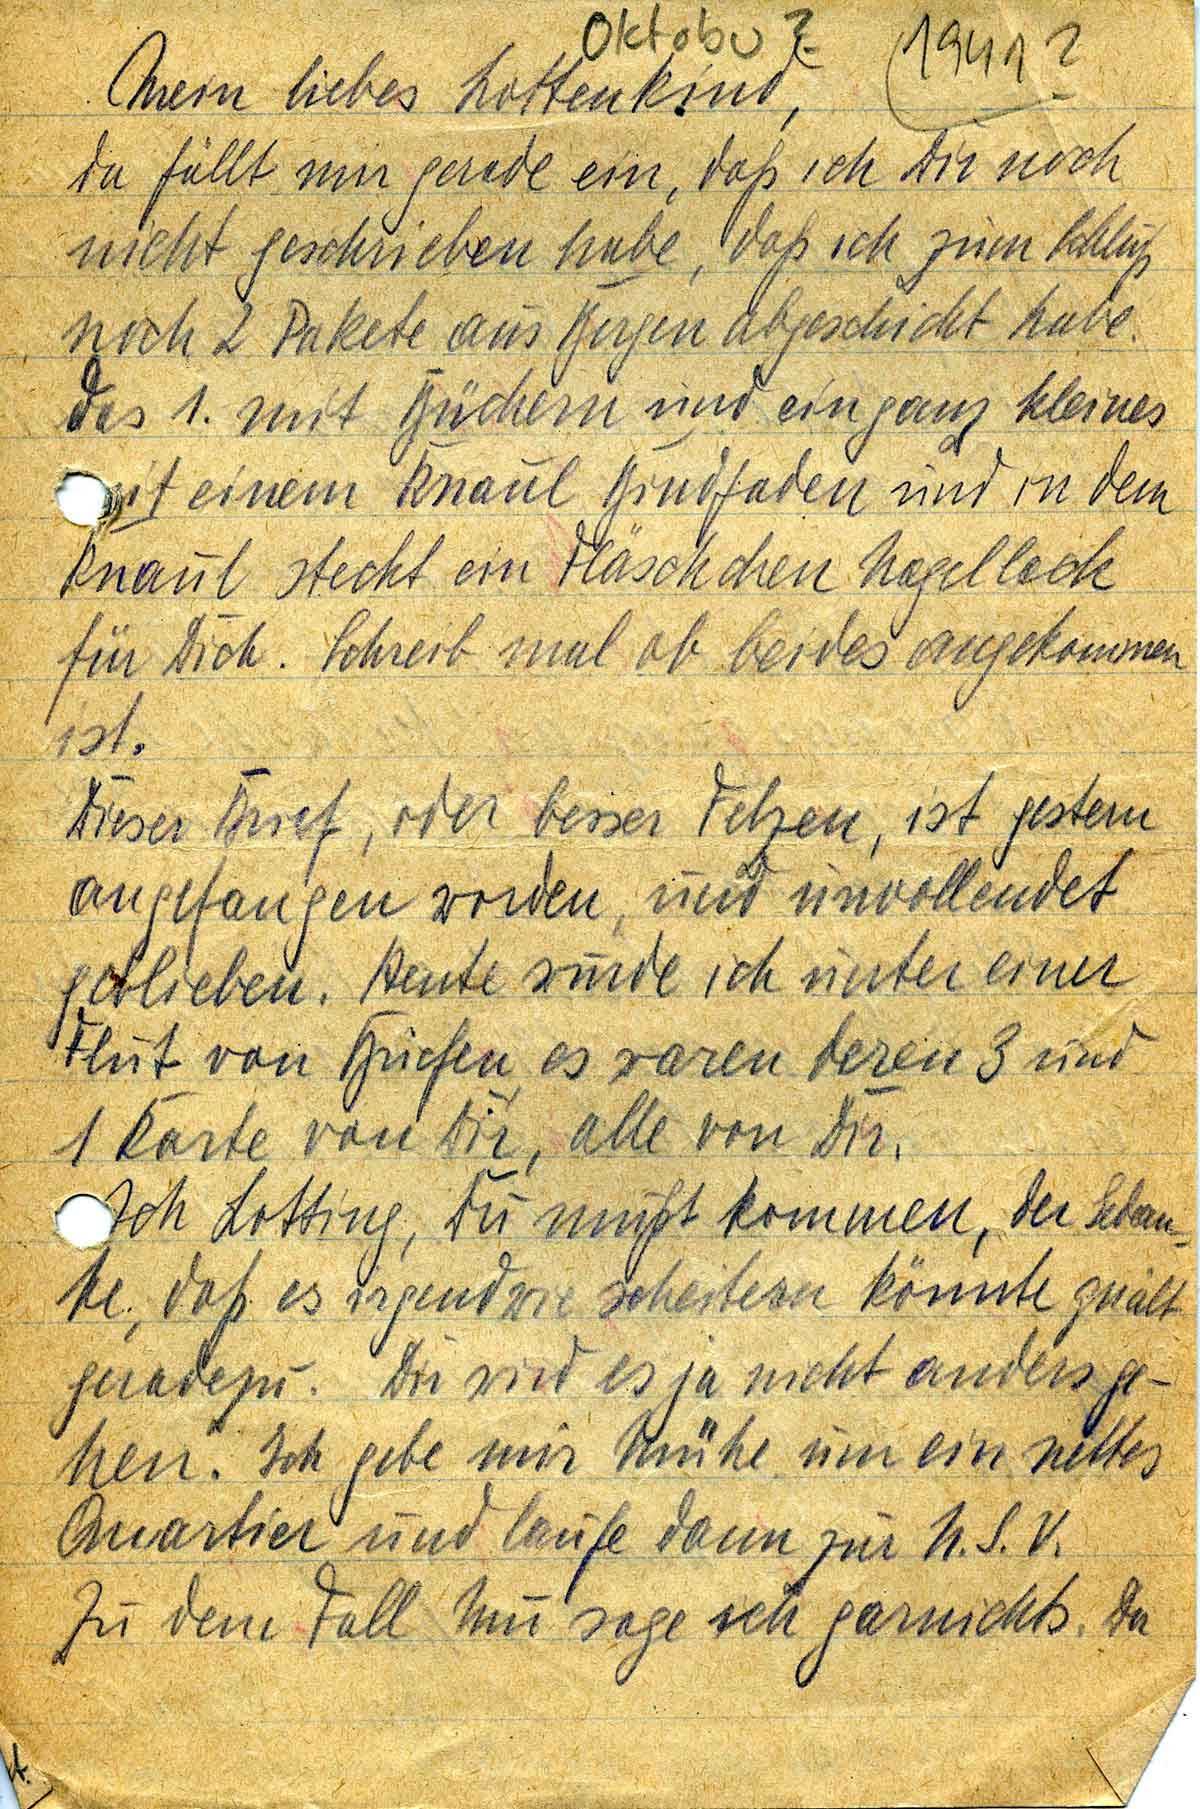 Oktober ? 1941 ?
Mein liebes Lottenkind,
da fällt mir gerade ein, daß ich Dir noch
nicht geschrieben habe, daß ich zum Schluß
noch 2 Pakete aus Bergen abgeschickt habe.
Das 1. mit Büchern und ein ganz kleines
mit einem Knaul Bindfaden und in dem
Knaul steckt ein Fläschchen Nagellack
für Dich. Schreib mal ob beides angekommen
ist.
Dieser Brief, oder besser Fetzen, ist gestern
angefangen worden, und unvollendet
geblieben. Heute wurde ich unter einer
Flut von Briefen, es waren deren 3 und
1 Karte von Dir, alle von Dir.
Ach Lotting, Du mußt kommen, der Gedan-
ke, daß es irgendwie scheitern könnte quält
geradezu. Dir wird es ja nicht anders ge-
hen. Ich gebe mir Mühe um ein nettes
Quartier und laufe dann zur N.S.V.
Zu dem Fall sage ich garnichts. Da